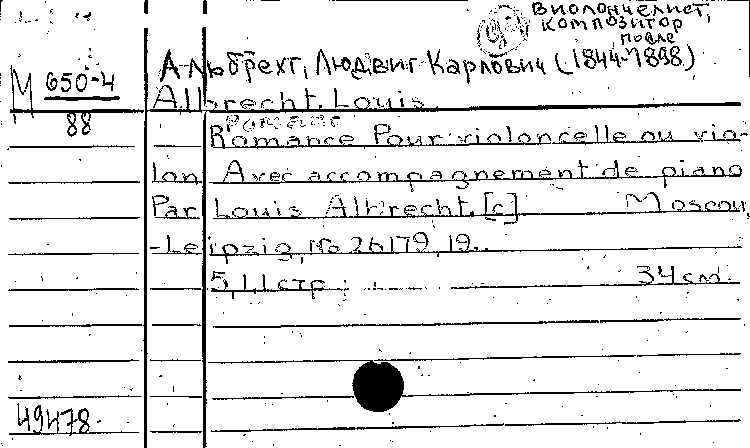 Виолончелист,
композитор
после
Альбрехт, Людвиг Карлович (1844-1898)
М 650-4
88
Albrecht, Louis
Romance Pour violoncelle ou vio-
lon Avec accompagnement de piano
Par Louis Albrecht. [c] Moscou,
-Leipzig, No 26179, 19..
5, 1, 1 стр. 34 см.
49478.